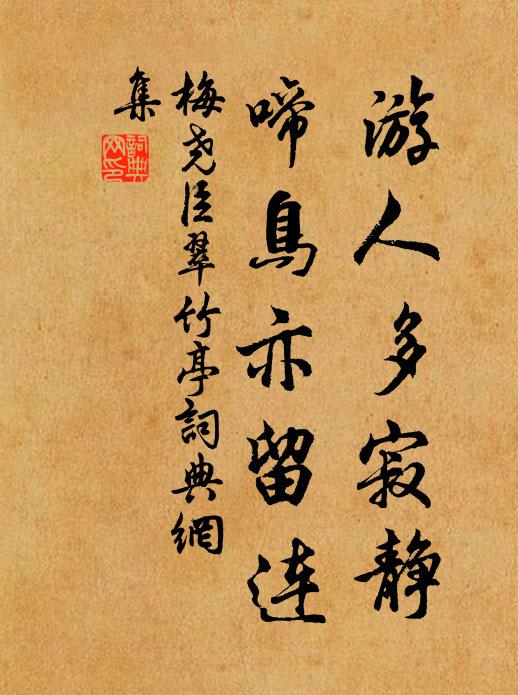 游人多寂静
啼鳥亦留连
梅尧臣翠竹亭詞典網
集
詞典
网印